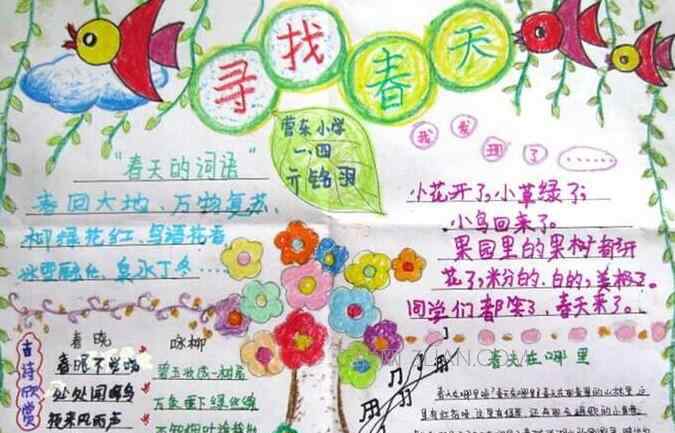 寻找春天
营东小学
一.四
亓铭羽
"春天的词语"
春回大地、万物复苏、
柳绿花红、鸟语花香
冰雪融化、泉水丁冬……
我发现了……
小花开了,小草绿了,
小鸟回来了。
果园里的果树都开
花了,粉的、白的,美极了。
同学们都笑了,春天来了。
古诗欣赏
春晓
春眠不觉晓
处处闻啼鸟
夜来风雨声
咏柳
碧玉妆成一树高
万条垂下绿丝绦
不知细叶谁裁出
春天在哪里
春天在哪里呀春天在哪里